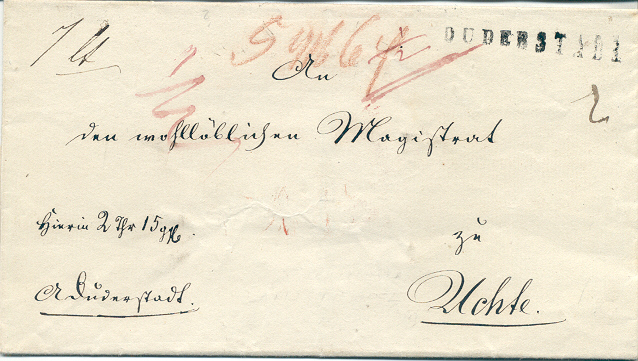 7 lt
5 ggr 6 
DUDERSTADT
An
2
den wohllöblichen Magistrat
Hierin 2 Thr 15 ggr.
zu
A Duderstadt.
Uchte.